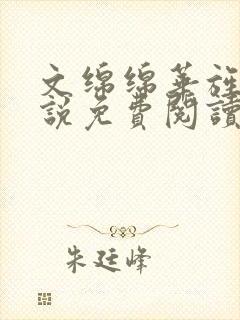 文綿綿華旌
說免費閱讀
朱廷峰